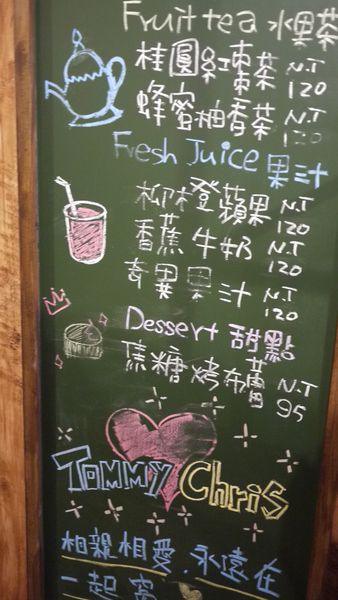 Fruit tea 水果茶
桂圓紅棗茶 N.T 120
蜂蜜柚香茶 N.T 120
Fresh Juice 果汁
柳橙蘋果 N.T 120
香蕉牛奶 N.T 120
奇異果汁 N.T 120
Dessert 甜點
焦糖烤布蕾 N.T 95
Tommy Chris
相親相愛.永遠在
一起